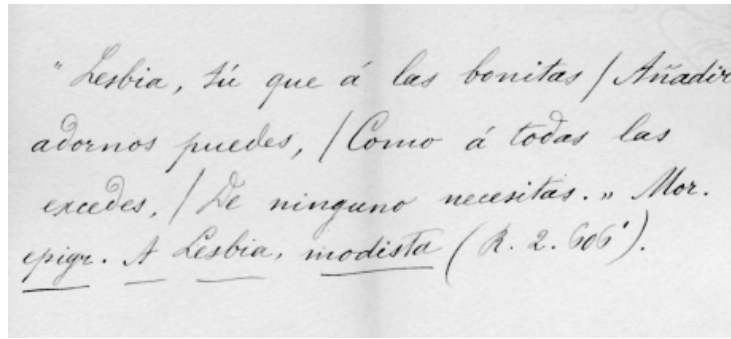 " Lesbia, tú que á las bonitas / Añadir
adornos puedes, / Como á todas las
excedes, / De ninguno necesitas. " Mor.
epigr. A Lesbia, modista ( R. 2. 606' ).